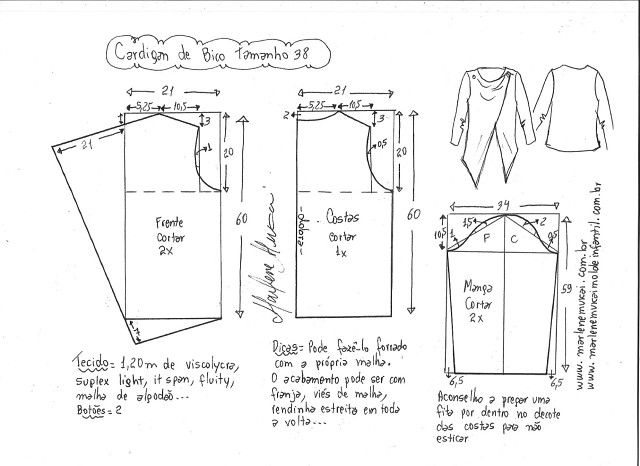 Cardigan de Bico Tamanho 38
21
5,25
10,5
3
21
1
20
60
Frente
cortar
2x
7
21
5,25
10,5
2
3
0,5
20
60
dobra
Costas
cortar
1x
Marlene Mukai
34
10,5
1
1,5
2
0,5
F
C
59
Manga
Cortar
2x
6,5
6,5
www.marlenemukai.com.br
www.marlenemukaimoldeinfantil.com.br
Tecido= 1,20m de viscolycra,
suplex light, it span, fluity,
malha de algodão...
Botões= 2
Dicas= Pode fazê-lo forrado
com a própria malha.
O acabamento pode ser com
franja, viés de malha,
rendinha estreita em toda
a volta...
Aconselho a pregar uma
fita por dentro no decote
das costas para não
esticar